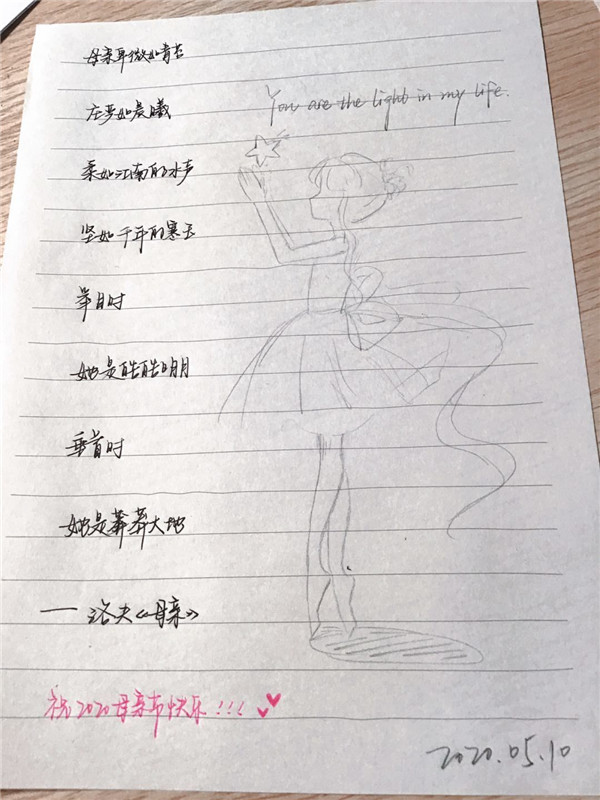 母亲卑微如青苔
You are the light in my life.
庄严如晨曦
柔如江南的水声
坚如千年的寒玉
举目时
她是皓皓明月
垂首时
她是莽莽大地
——洛夫《母亲》
祝2020母亲节快乐!!!
2020.05.10